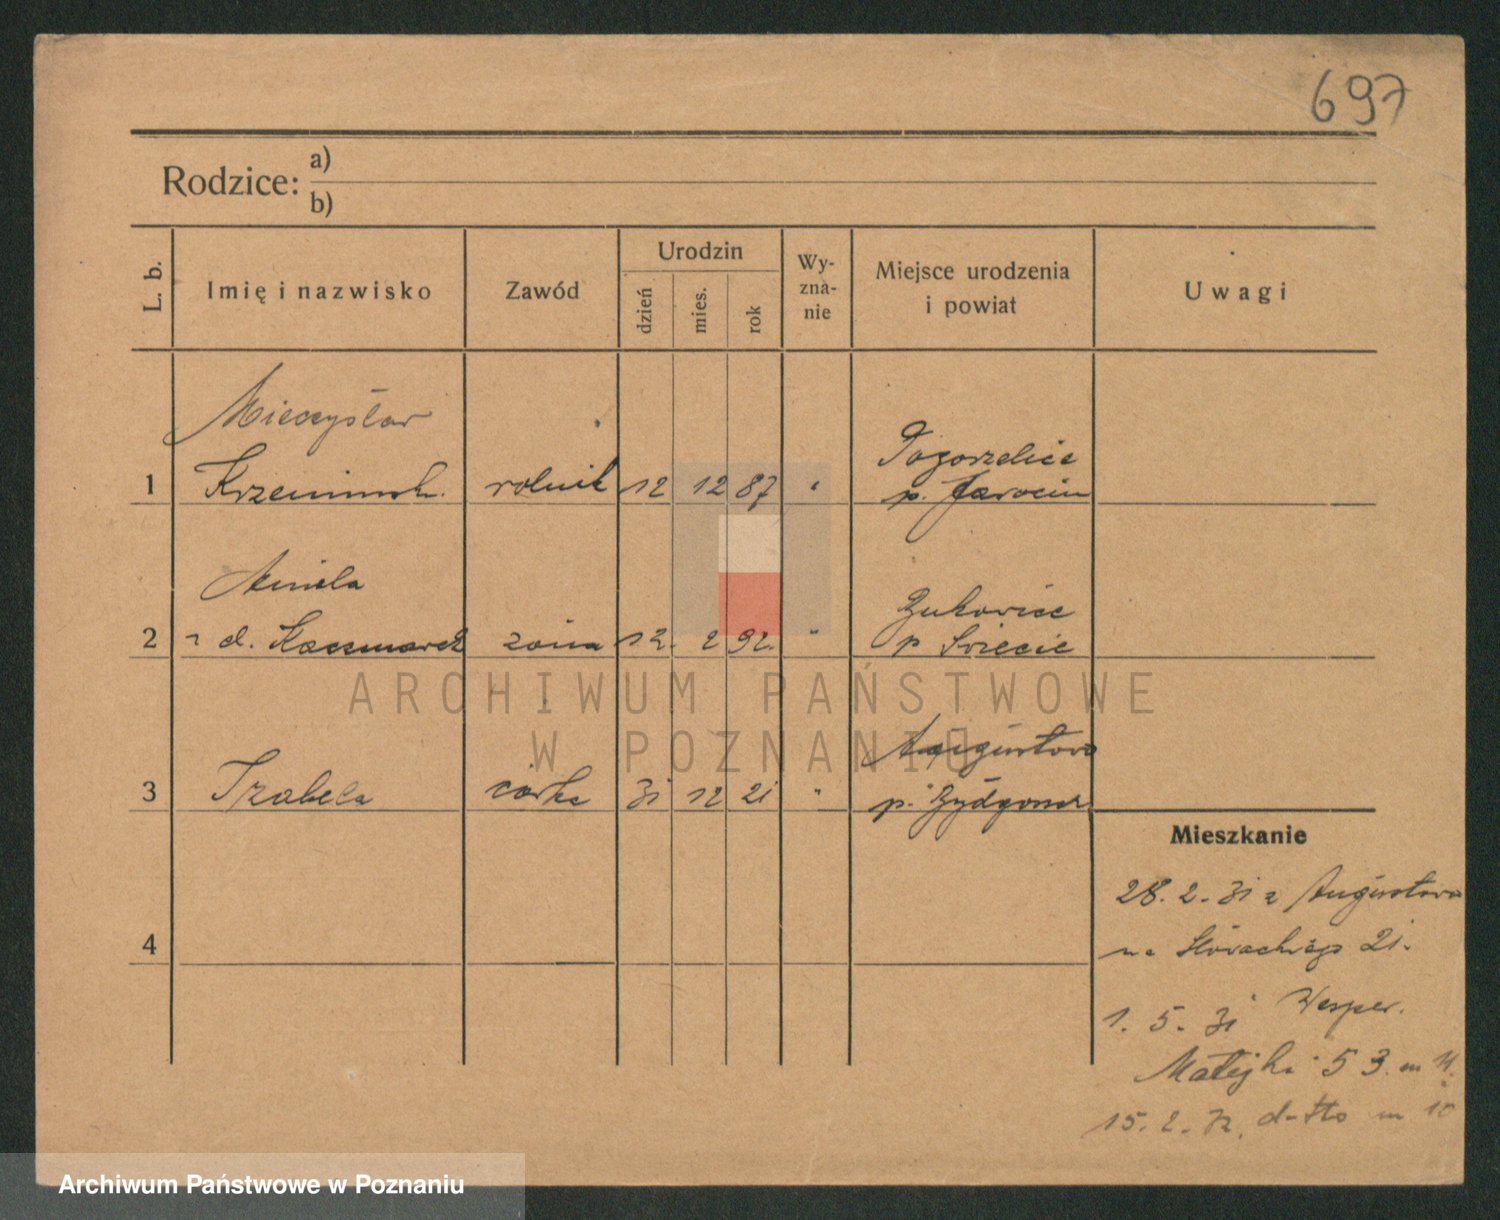 697
Rodzice: a)
b)
L. b.
Imię i nazwisko
Zawód
Urodzin
dzień
mies.
rok
Wy-
zna-
nie
Miejsce urodzenia
i powiat
Uwagi
Mieczysław
1 Krzemińsk. rolnik 12 12 87 " Pogorzelice
p. Jarocin
Aniela
2 z d. Kaczmarek żona 12. 2 92. " Żukowice
p Świecie
3 Izabela córka 31 12 21 " Augustowo
p. Bydgoszcz
4
Mieszkanie
28. 2. 31 z Augustowo
na 21.
1. 5. 31
Matejki 53. m 11.
15. 2. 32. d-tto m 10
ARCHIWUM PAŃSTWOWE
W POZNANIU
Archiwum Państwowe w Poznaniu